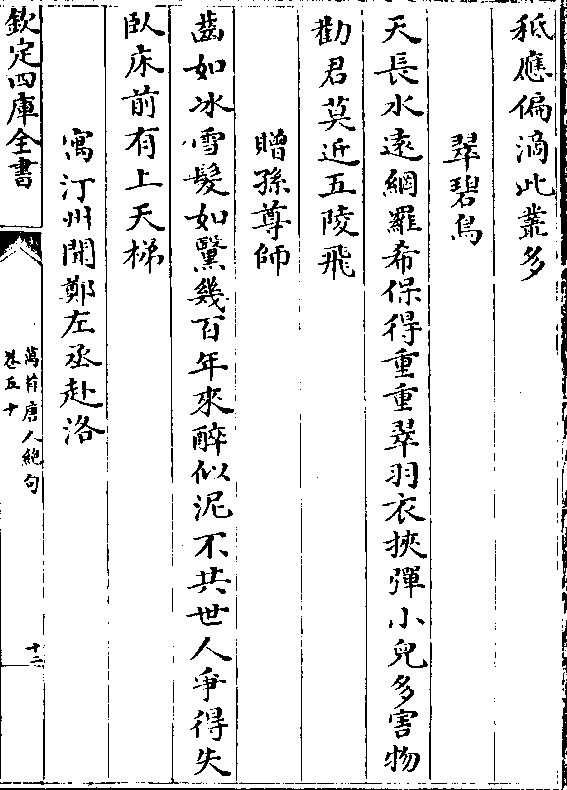 秪應偏滴此叢多
翠碧鳥
天長水遠網羅希保得重重翠羽衣挾彈小兒多害物
勸君莫近五陵飛
贈孫尊師
齒如冰雪髮如黳幾百年來醉似泥不共世人爭得失
臥床前有上天梯
寓汀州聞鄭左丞赴洛
欽定四庫全書
萬首唐人絶句
卷五十
十二